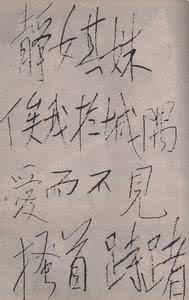 靜女其姝
俟我於城隅
愛而不見
搔首